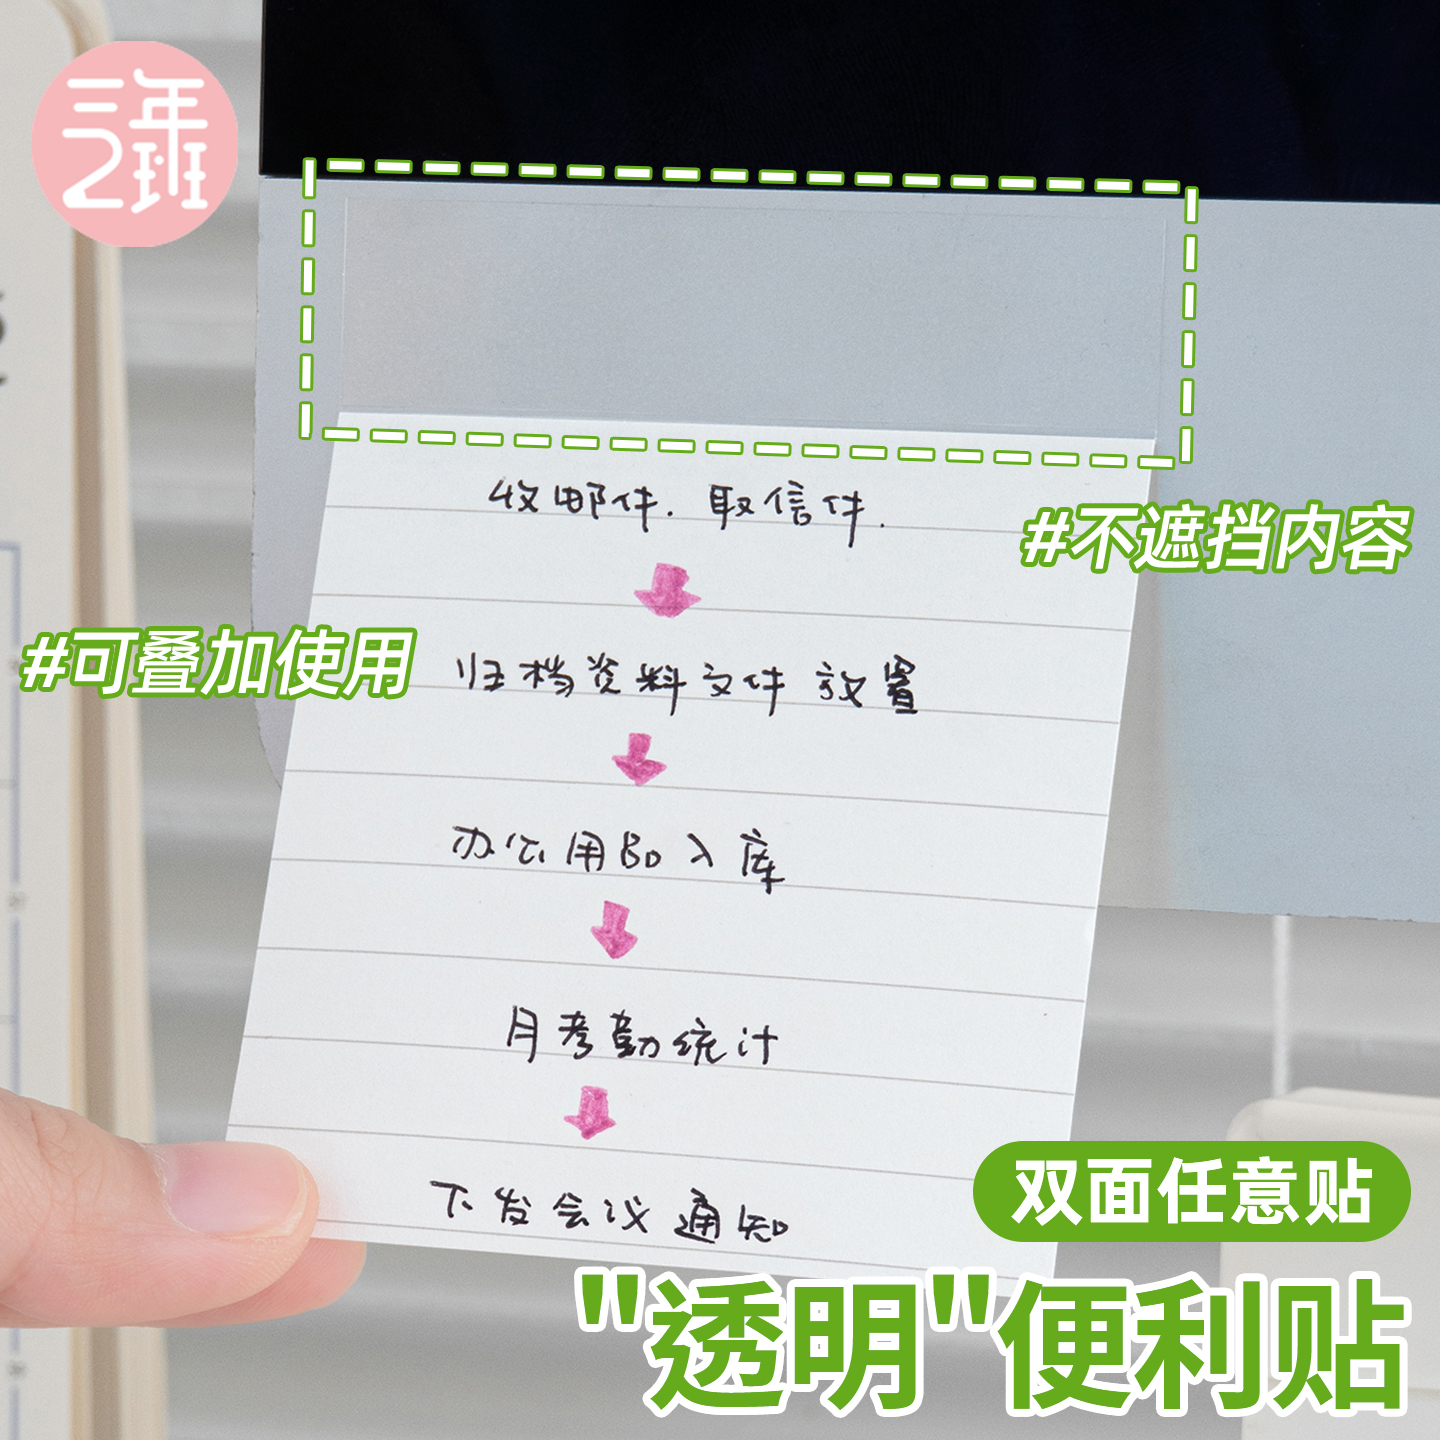 三年
2班
收邮件. 取信件.
#不遮挡内容
#可叠加使用
归档资料文件放置
办公用品入库
月考勤统计
下发会议通知
双面任意贴
"透明"便利贴